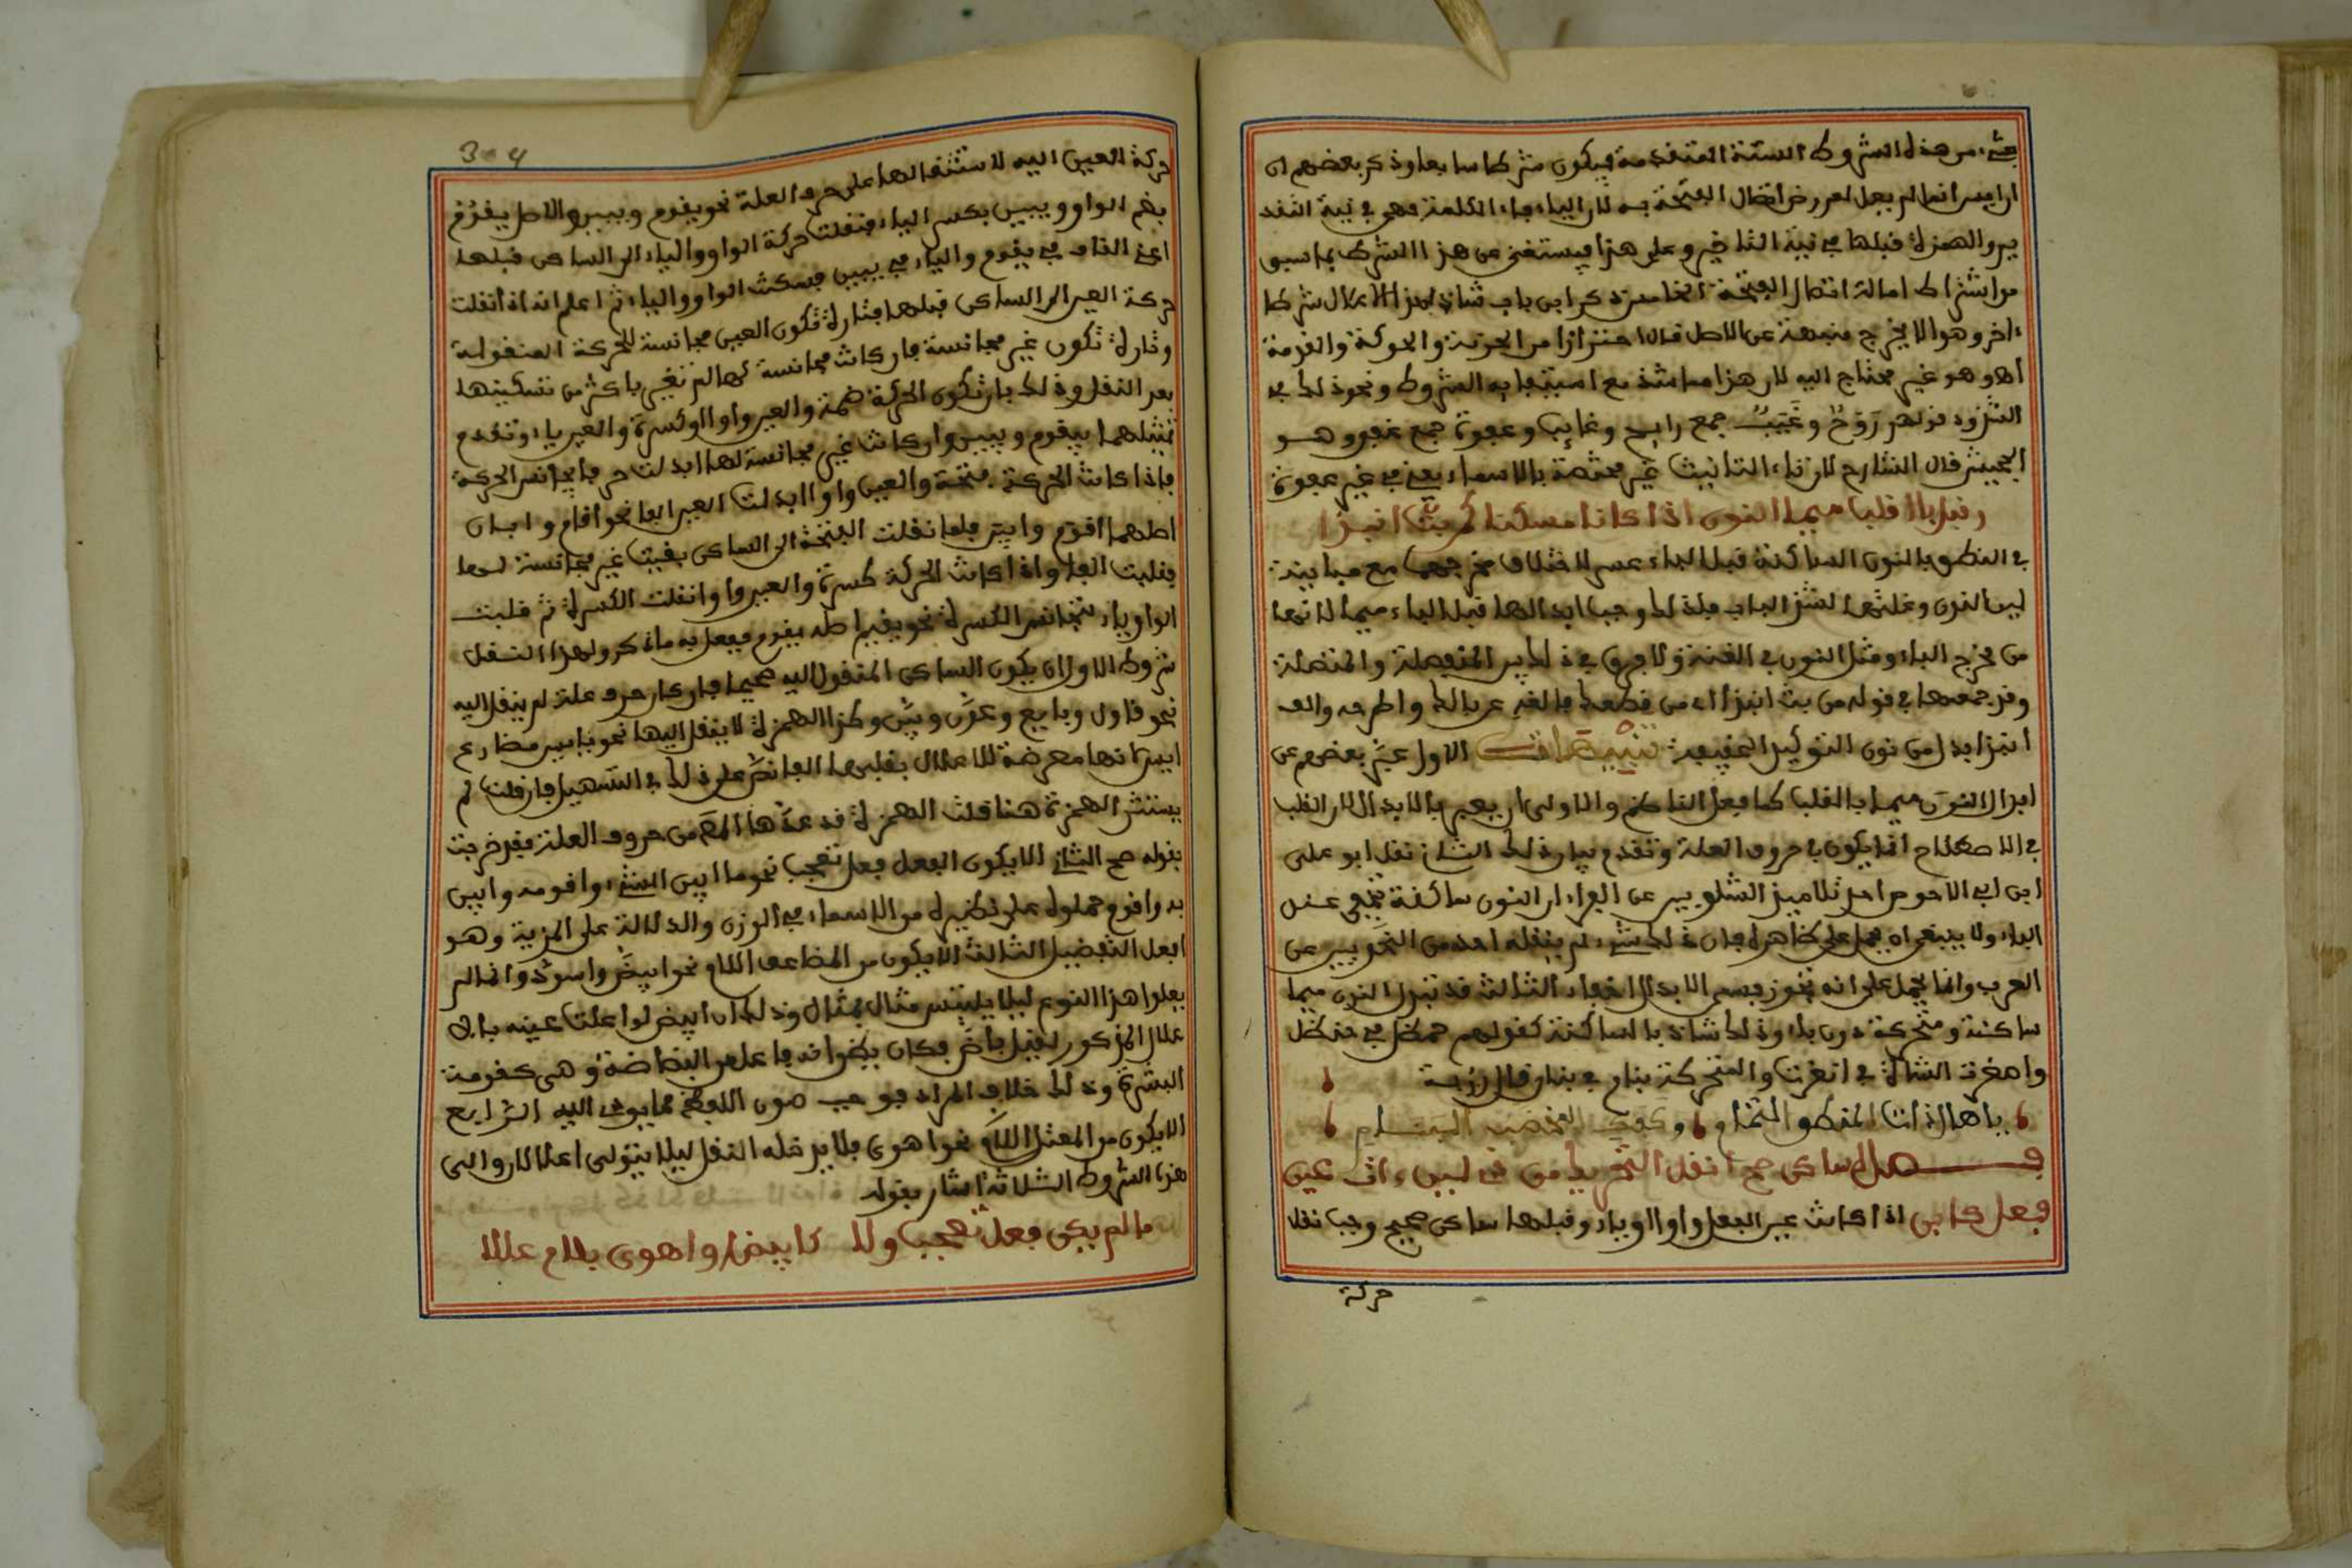 شيء من هذه الشروط الستة المتقدمة فيكون شرطا سابعا وذكر بعضهم ان
ايس انما لم يعل لعروض اتصال الفتحة به لان الياء فاء الكلمة فهي في نية التقد
يم والهمزة قبلها في نية التاخير وعلى هذا فيستغنى عن هذا الشرط بما سبق
من اشتراط اصالة اتصال الفتحة الخامس ذكر ابن باب شاذ لهذا الاعلال شرطا
ءاخر وهو الا يخرج منبهة عن الاصل قال احترازا من الخونة والحوكة
اه وهو غير محتاج اليه لان هذا مما شذ مع استيفايه الشروط ونحو ذلك في
الشذوذ قولهم رَوَحٌ وغَيَبٌ جمع رايح وغايب وعفوة جمع عفو وهو
الجحش قال الشارح لان تاء التانيث غير مختصة بالاسماء يعني في غير عفوة
وقبل با اقلب ميما النون اذا كان مسكنا كمن بت انبذا
في النطق بالنون الساكنة قبل الباء عسر لاختلاف مخرجهما مع مباينة
لين النون وغنتها لشدة الباء فلذلك وجب ابدالها قبل الباء ميما لانها
من مخرج الباء ومثل النون في الغنة ولا فرق في ذلك بين المنفصلة والمتصلة
وقد جمعهما في قوله من بت انبذا اي من قطعك فالقه عن بالك واطرحه والف
انبذا بدل من نون التوكيد الخفيفة تنبيهات الاول عبر بعضهم عن
ابدال النون ميما بالقلب كما فعل الناظم والاولى ان يعبر بالابدال لان القلب
في الاصطلاح انما يكون في حروف العلة وتقدم بيان ذلك الثاني نقل ابو على
ابن ابي الاحوص احد تلاميذ الشلوبين عن الفراء ان النون ساكنة تخفى عند
الباء ولا ينبغي ان يحمل على ظاهره فان ذلك شيء لم ينقله احد من النحويين عن
العرب وانما يحمل على انه تجوز فسمى الابدال اخفاء الثالث قد تبدل النون ميما
ساكنة ومتحركة دون باء وذلك شاذ بالساكنة كقولهم حمظل في حنظل
وامغرت الشاة في انغرت والمتحركة بنام في بنان قال رؤبة
يا هال ذات المنطق التمتام وكفك المخضب البنام
فصل لساكن صح انقل التحريك من ذي لين ءات عين
فعل كابن اذا كانت عين الفعل واوا او ياء وقبلها ساكن صحيح وجب نقل
حركة
304
حركة العين اليه لاستثقالها على حرف العلة نحو يقوم ويبين والاصل يقوُم
بضم الواو ويبيِن بكسر الياء فنقلت حركة الواو والياء الى الساكن قبلهما
اعني القاف في يقوم والباء في يبين فسكنت الواو والياء ثم اعلم انه اذا نقلت
حركة العين الى الساكن قبلها فتارة تكون العين مجانسة للحركة المنقولة
وتارة تكون غير مجانسة فان كانت مجانسة لها لم تغير باكثر من تسكينها
بعد النقل وذلك بان تكون الحركة ضمة والعين واوا او كسرة والعين ياء وتقدم
تمثيلهما بيقوم ويبين وان كانت غير مجانسة لها ابدلت حرفا يجانس الحركة
فاذا كانت الحركة فتحة والعين واوا ابدلت العين الفا نحو اقام وابان
اصلهما اقوم وابين فلما نقلت الفتحة الى الساكن بقيت غير مجانسة لها
فقلبت الفا واذا كانت الحركة كسرة والعين واوا نقلت الكسرة ثم قلبت
الواو ياء لتجانس الكسرة نحو يقيم اصله يقوم ففعل به ما ذكر ولهذا النقل
شروط الاول ان يكون الساكن المنقول اليه صحيحا فان كان حرف علة لم ينقل اليه
نحو قاول وبايع وعوّق وبيّن وكذا الهمزة لا ينقل اليها نحو يايس مضارع
ايس لانها معرضة للاعلال بقلبها الفا نص على ذلك في التسهيل فان قلت لم
يستثن الهمزة هنا قلت الهمزة قد عدها من حروف العلة فقد خرجت
بقوله صح الثاني الا يكون الفعل فعل تعجب نحو ما ابين الشيء واقومه وابين
به واقوم حملوه على نظيره من الاسماء في الوزن والدلالة على المزية وهو
افعل التفضيل الثالث الا يكون من المضاعف اللام نحو ابيضّ واسودّ وانما لم
يعلوا هذا النوع ليلا يلتبس مثال بمثال وذلك ان ابيض لو اعلت عينه بالا
علال المذكور لقيل باض فكان يظن انه فاعل من البضاضة وهي نعومة
البشرة وذلك خلاف المراد فوجب صون اللفظ مما يودي اليه الرابع
الا يكون من المعتل اللام نحو اهوى فلا يدخله النقل ليلا يتوالى اعلالان والى
هذه الشروط الثلاثة اشار بقوله
ما لم يكن فعل تعجب ولا كابيض او اهوى بلام عللا